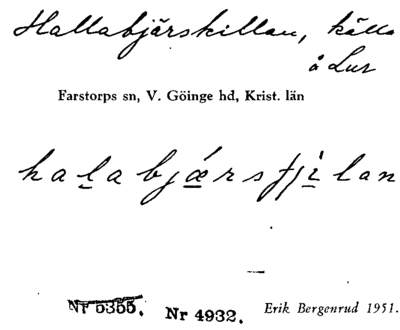 Hallabjärskillan, källa
å Lur
Farstorps sn, V. Göinge hd, Krist. län
halabjǽrsfjìlan
Nr 5355. Nr 4932. Erik Bergenrud 1951.